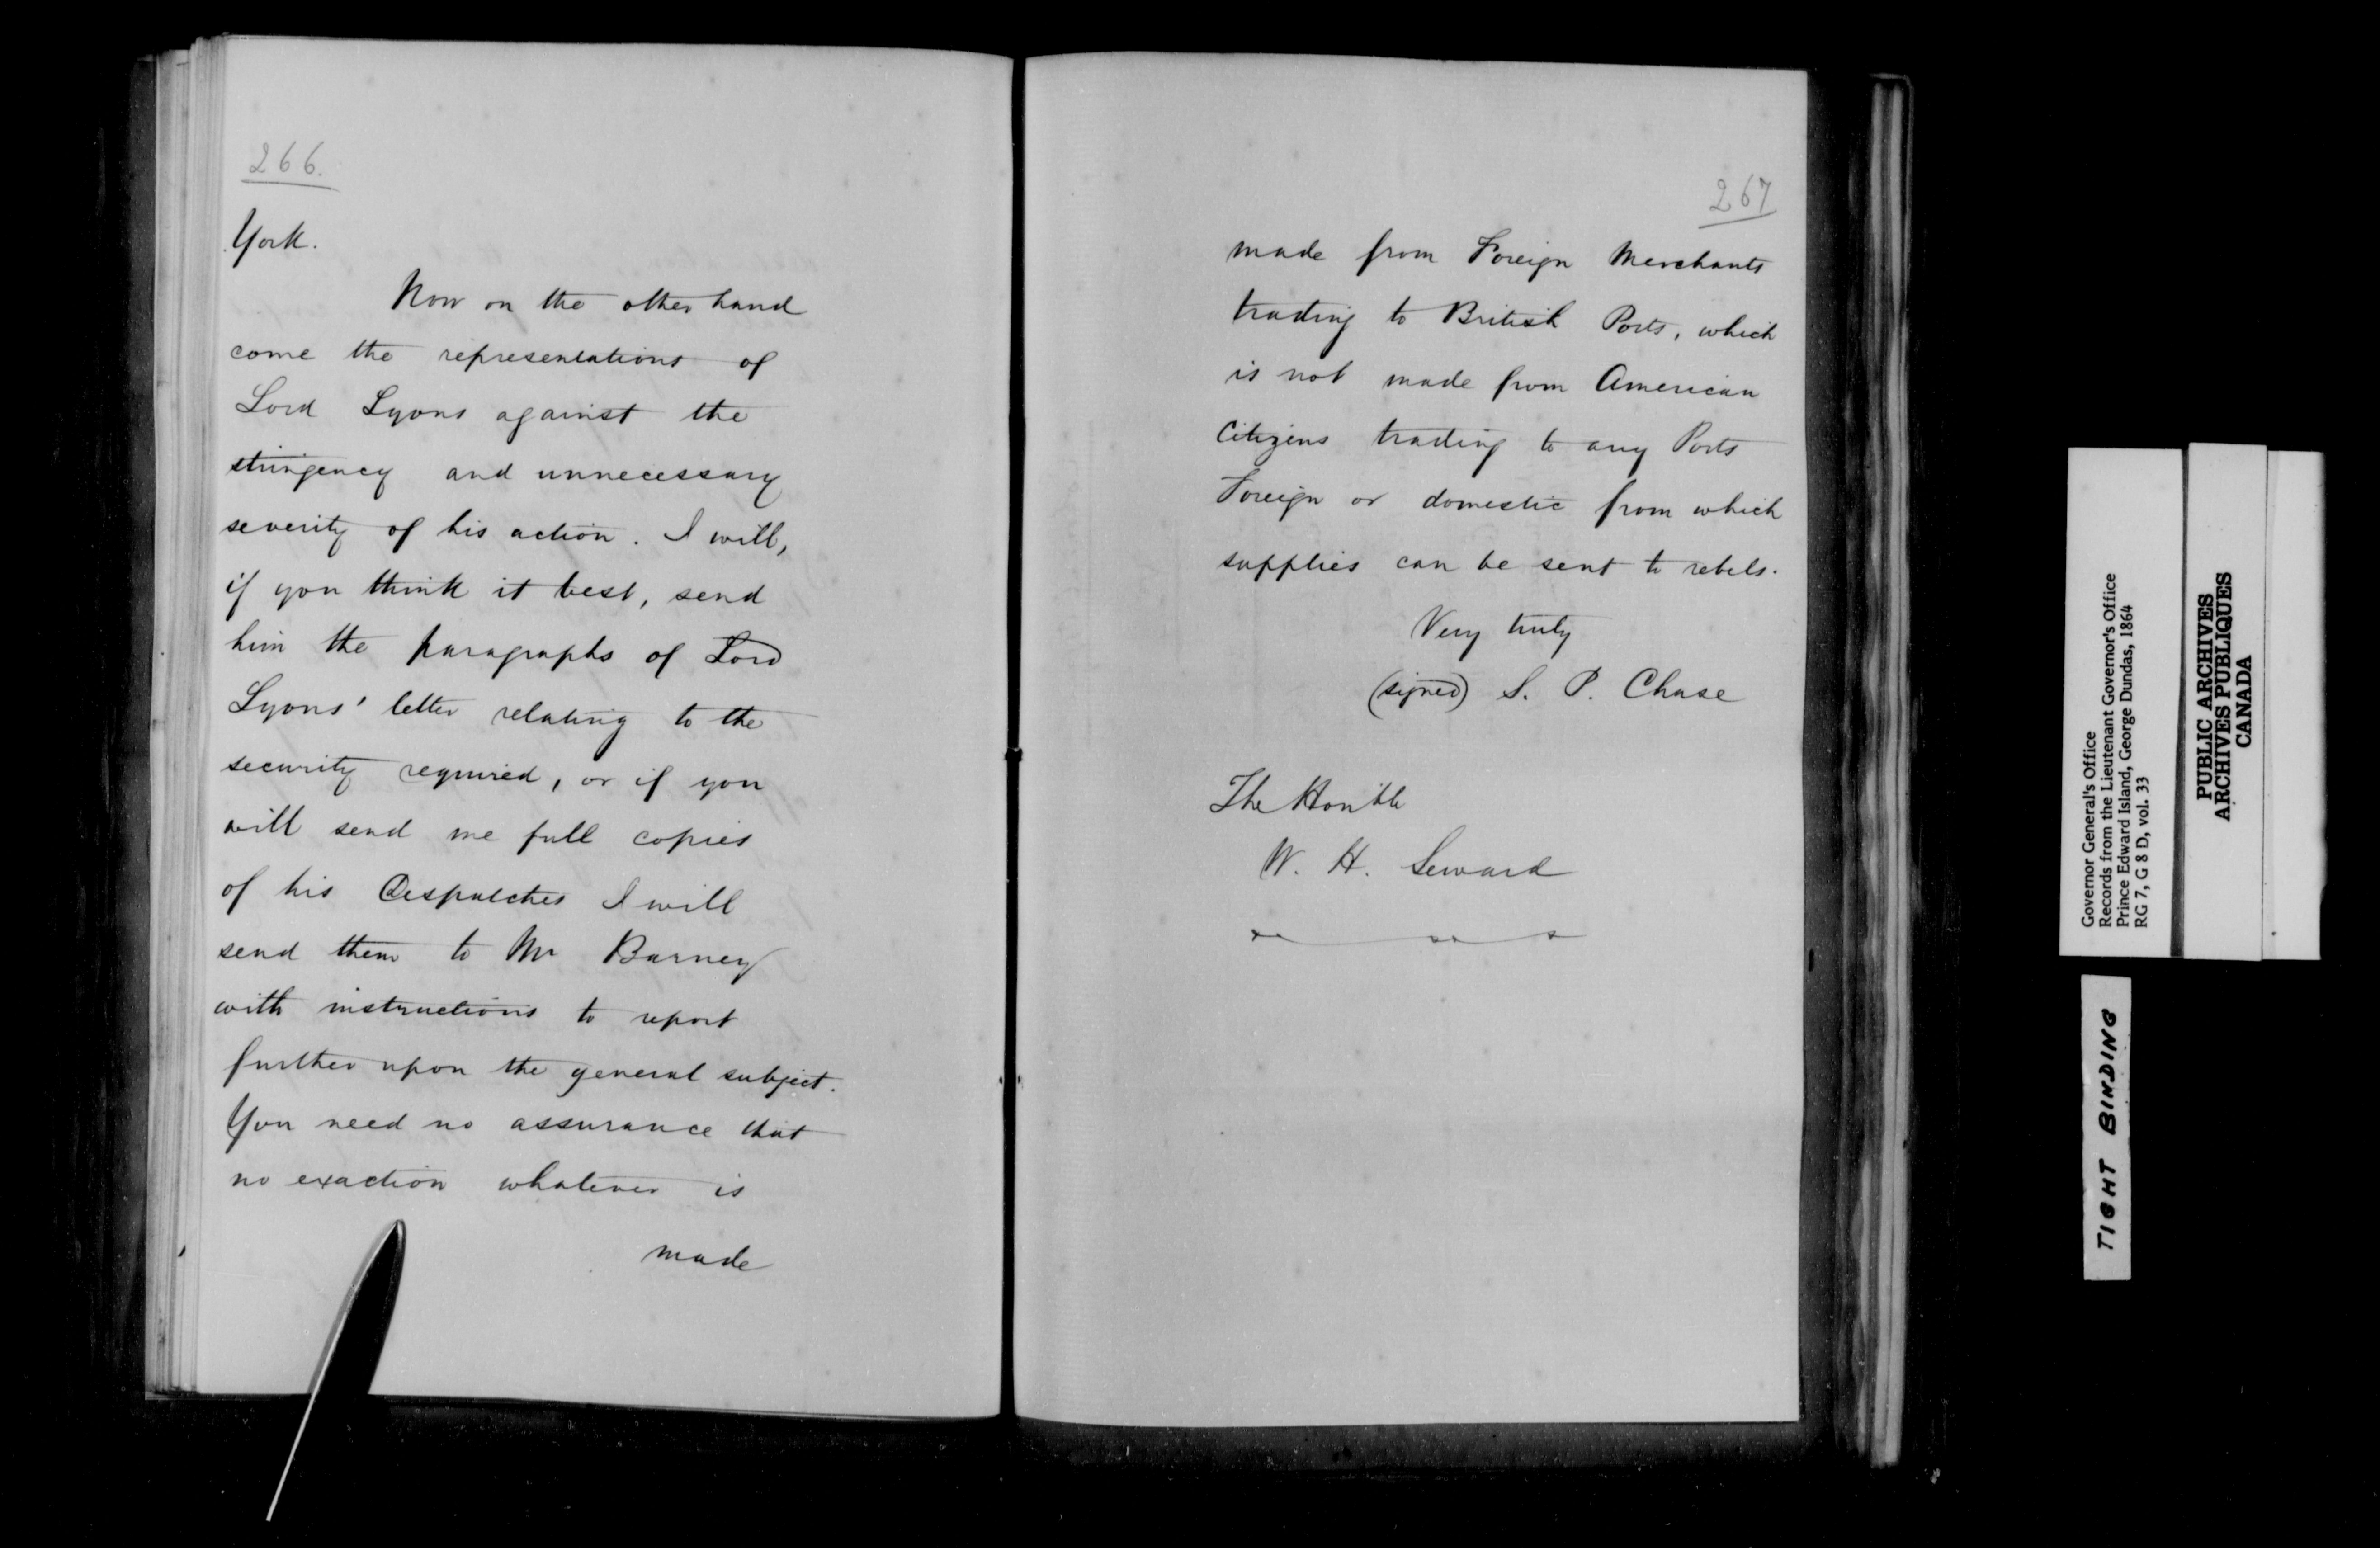 266.
York.
Now on the other hand
come the representations of
Lord Lyons against the
stringency and unnecessary
severity of his action. I will,
if you think it best, send
him the paragraphs of Lord
Lyons' letter relating to the
security required, or if you
will send me full copies
of his Despatches I will
send them to Mr Barney
with instructions to report
further upon the general subject.
You need no assurance that
no exaction whatever is
made
267
made from Foreign Merchants
trading to British Ports, which
is not made from American
Citizens trading to any Ports
Foreign or domestic from which
supplies can be sent to rebels.
Very truly
(signed) S. P. Chase
The Honble
W. H. Seward
Governor General's Office
Records from the Lieutenant Governor's Office
Prince Edward Island, George Dundas, 1864
RG 7, G 8 D, vol. 33
PUBLIC ARCHIVES
ARCHIVES PUBLIQUES
CANADA
TIGHT BINDING